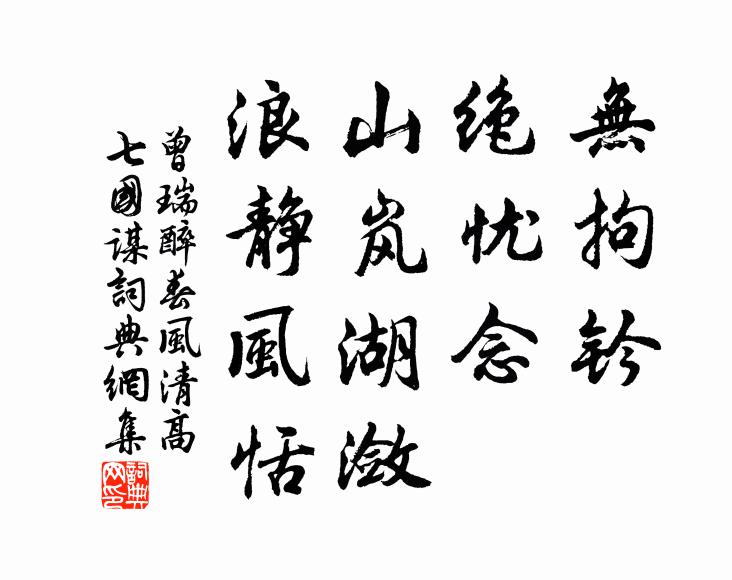 無拘鈐
绝忧念
山岚湖潋
浪静風恬
曾瑞醉春風清高
七國谋詞典網集
詞典网印